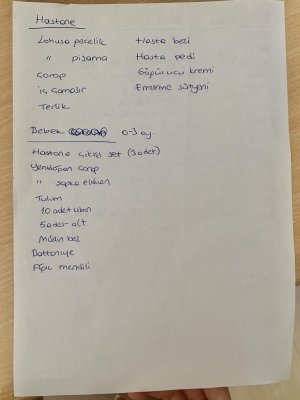 Hastane
Lohusa pecelik
" pijama
Çorap
iç çamaşır
Terlik
Hasta bezi
Hasta pedi
Göğüs ucu kremi
Emzirme sütyeni
Bebek 0-3 ay.
Hastane çıkışı set (3 adet)
Yenidoğan çorap
" şapka eldiven
Tulum
10 adet
5 adet alt
Müslin bez
Battaniye
Ağız mendili